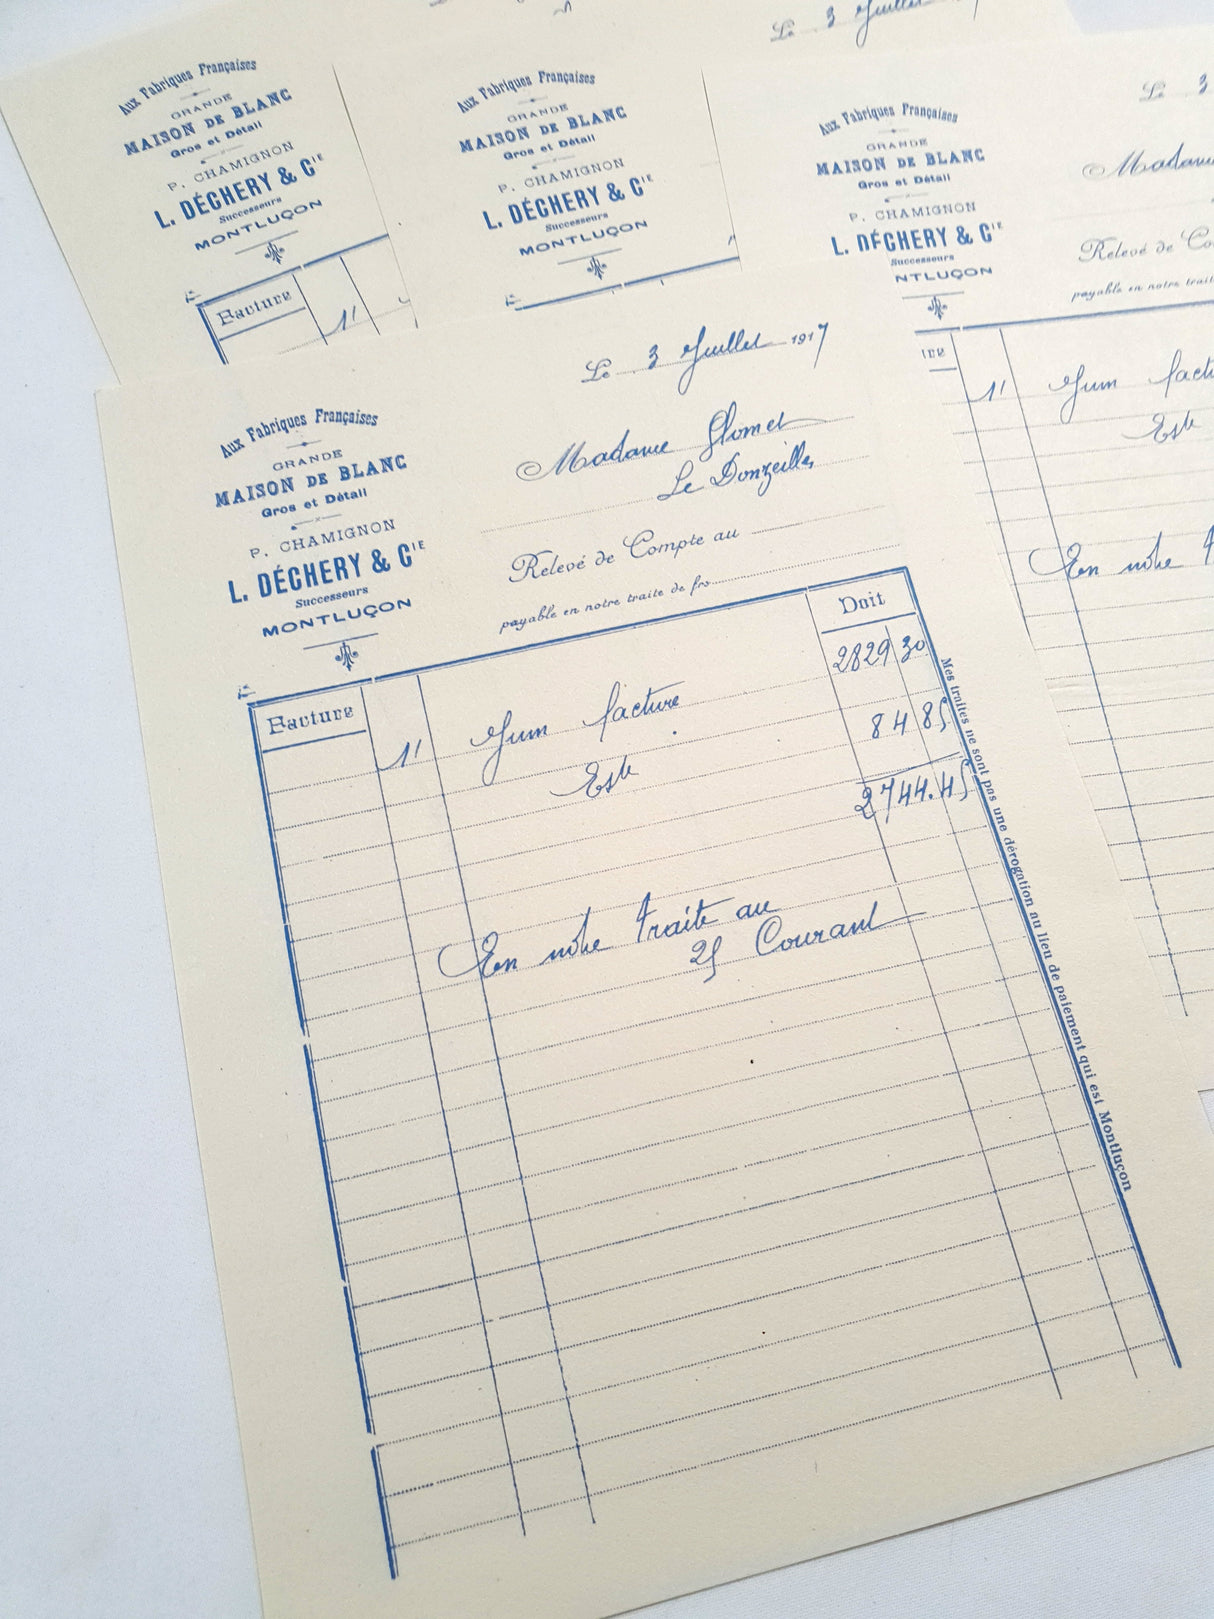 Le 3 Juillet
Aux Fabriques Françaises
GRANDE
MAISON DE BLANC
Gros et Détail
P. CHAMIGNON
L. DÉCHERY & CIE
Successeurs
MONTLUÇON
Facture
1'
Aux Fabriques Françaises
GRANDE
MAISON DE BLANC
Gros et Détail
P. CHAMIGNON
L. DÉCHERY & CIE
Successeurs
MONTLUÇON
Le 3
Aux Fabriques Françaises
GRANDE
MAISON DE BLANC
Gros et Détail
P. CHAMIGNON
L. DÉCHERY & CIE
Successeurs
NTLUÇON
Madame
Relevé de Co
payable en notre trait
1'
Juin fact
En notre t
Le 3 Juillet 1917
Aux Fabriques Françaises
GRANDE
MAISON DE BLANC
Gros et Détail
P. CHAMIGNON
L. DÉCHERY & CIE
Successeurs
MONTLUÇON
Madame Glomet
Le Donzeilles
Relevé de Compte au
payable en notre traite de frs
Facture
Doit
1' Juin facture 2829 30
84 85
2744.45
En notre traite au
25 Courant
Mes traites ne sont pas une dérogation au lieu de paiement qui est Montluçon